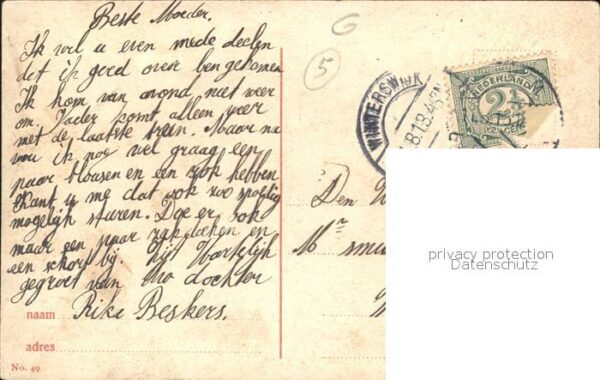 Beste Moeder.
Ik wil u even mede deelen
dat ik goed over ben gekomen
Ik kom van avond niet weer
om. Vader komt alleen weer
met de laatste trein. Maar nu
wou ik nog wel graag een
paar blousen en een rok hebben
Kunt u me dat ook zoo spoedig
mogelijk sturen. Doe er ook
maar een paar zakdoeken en
een schort bij. Zijt Hartelijk
gegroet van Uw dochter
naam Rika Beskers.
adres
No. 49
G
5
WINTERSWIJK
NEDERLAND
2½
CENT
Den
Mr
privacy protection
Datenschutz